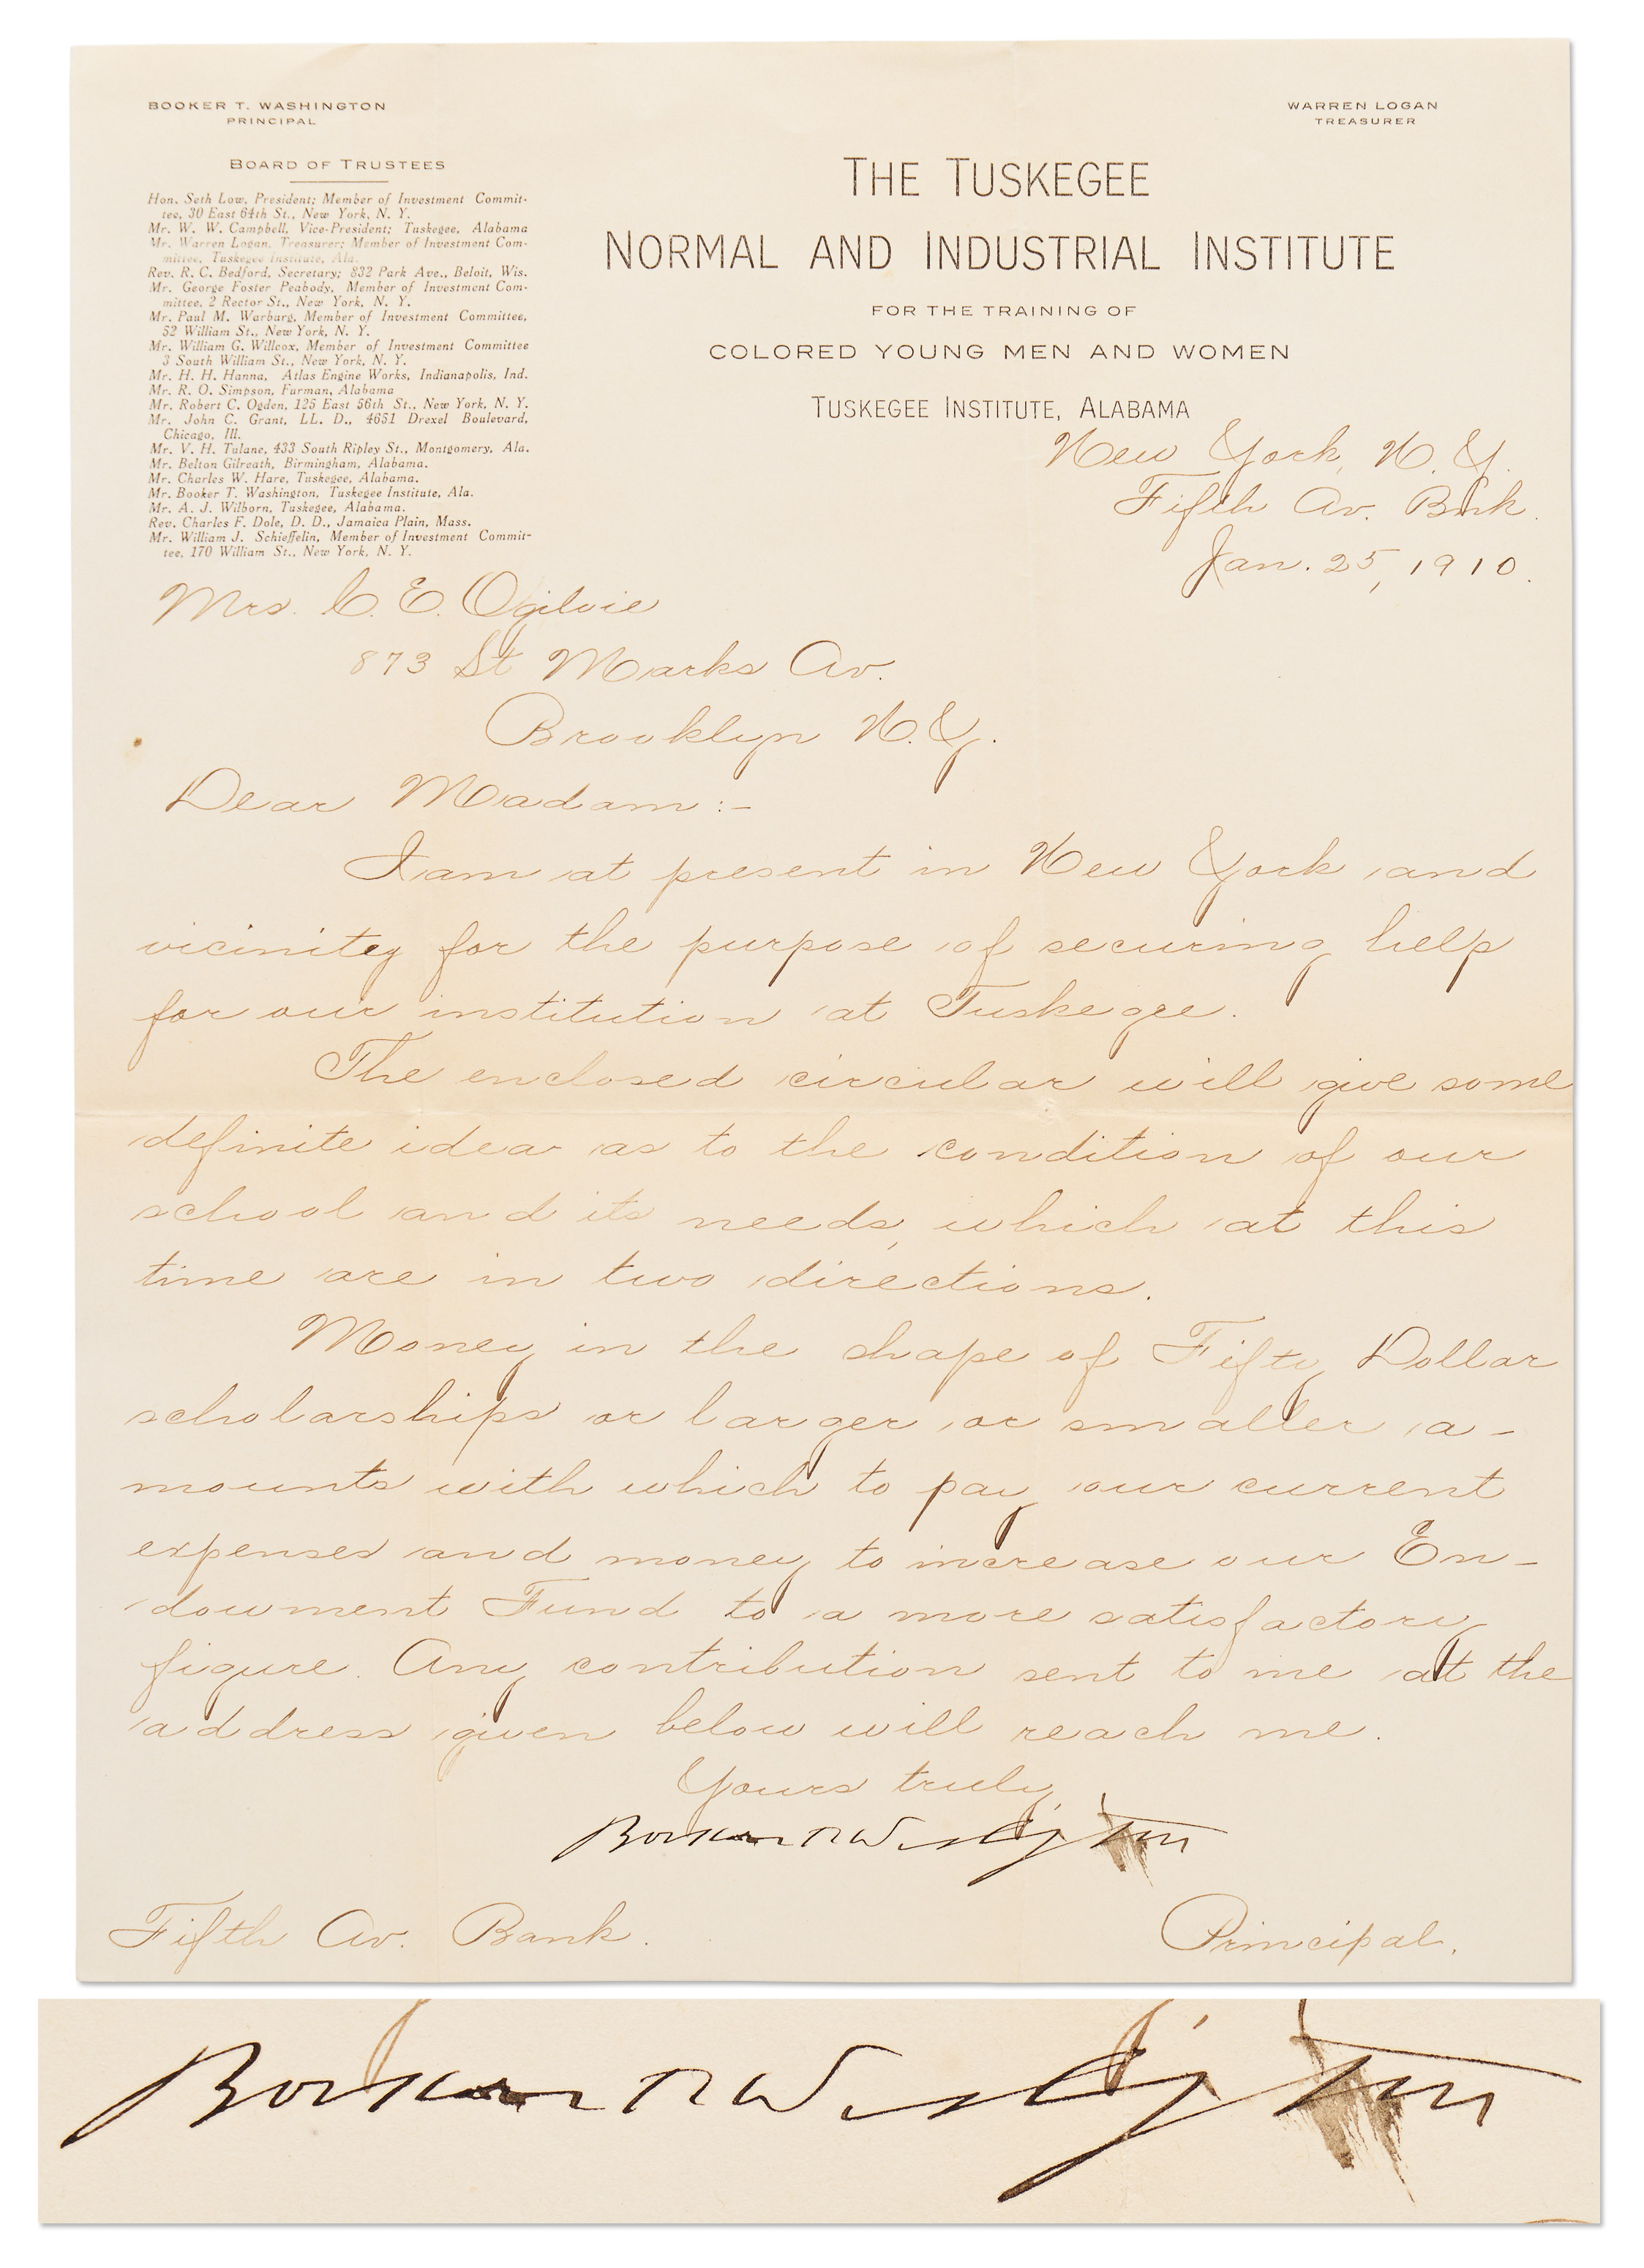 BOOKER T. WASHINGTON
PRINCIPAL
WARREN LOGAN
TREASURER
BOARD OF TRUSTEES
Hon. Seth Low, President; Member of Investment Commit-
tee, 30 East 64th St., New York, N. Y.
Mr. W. W. Campbell, Vice-President; Tuskegee, Alabama
Mr. Warren Logan, Treasurer; Member of Investment Com-
mittee, Tuskegee Institute, Ala.
Rev. R. C. Bedford, Secretary; 832 Park Ave., Beloit, Wis.
Mr. George Foster Peabody, Member of Investment Com-
mittee, 2 Rector St., New York, N. Y.
Mr. Paul M. Warburg, Member of Investment Committee,
52 William St., New York, N. Y.
Mr. William G. Willcox, Member of Investment Committee
3 South William St., New York, N. Y.
Mr. H. H. Hanna, Atlas Engine Works, Indianapolis, Ind.
Mr. R. O. Simpson, Furman, Alabama
Mr. Robert C. Ogden, 125 East 56th St., New York, N. Y.
Mr. John C. Grant, LL. D., 4651 Drexel Boulevard,
Chicago, Ill.
Mr. V. H. Tulane, 433 South Ripley St., Montgomery, Ala.
Mr. Belton Gilreath, Birmingham, Alabama.
Mr. Charles W. Hare, Tuskegee, Alabama.
Mr. Booker T. Washington, Tuskegee Institute, Ala.
Mr. A. J. Wilborn, Tuskegee, Alabama.
Rev. Charles F. Dole, D. D., Jamaica Plain, Mass.
Mr. William J. Schieffelin, Member of Investment Commit-
tee, 170 William St., New York, N. Y.
THE TUSKEGEE
NORMAL AND INDUSTRIAL INSTITUTE
FOR THE TRAINING OF
COLORED YOUNG MEN AND WOMEN
TUSKEGEE INSTITUTE, ALABAMA
New York, N. Y.
Fifth Av. Bnk.
Jan. 25, 1910.
Mrs. C. E. Ogilvie
873 St Marks Av.
Brooklyn N.Y.
Dear Madam:-
I am at present in New York and
vicinitey for the purpose of securing help
for our institution at Tuskegee.
The enclosed circular will give some
definite idea as to the condition of our
school and its needs, which at this
time are in two directions.
Money in the shape of Fifty Dollar
scholarships or larger or smaller a-
mounts with which to pay our current
expenses and money to increase our En-
dowment Fund to a more satisfactory
figure. Any contribution sent to me at the
address given below will reach me.
Yours truly,
Booker T. Washington
Fifth Av. Bank.
Principal.
Booker T. Washington